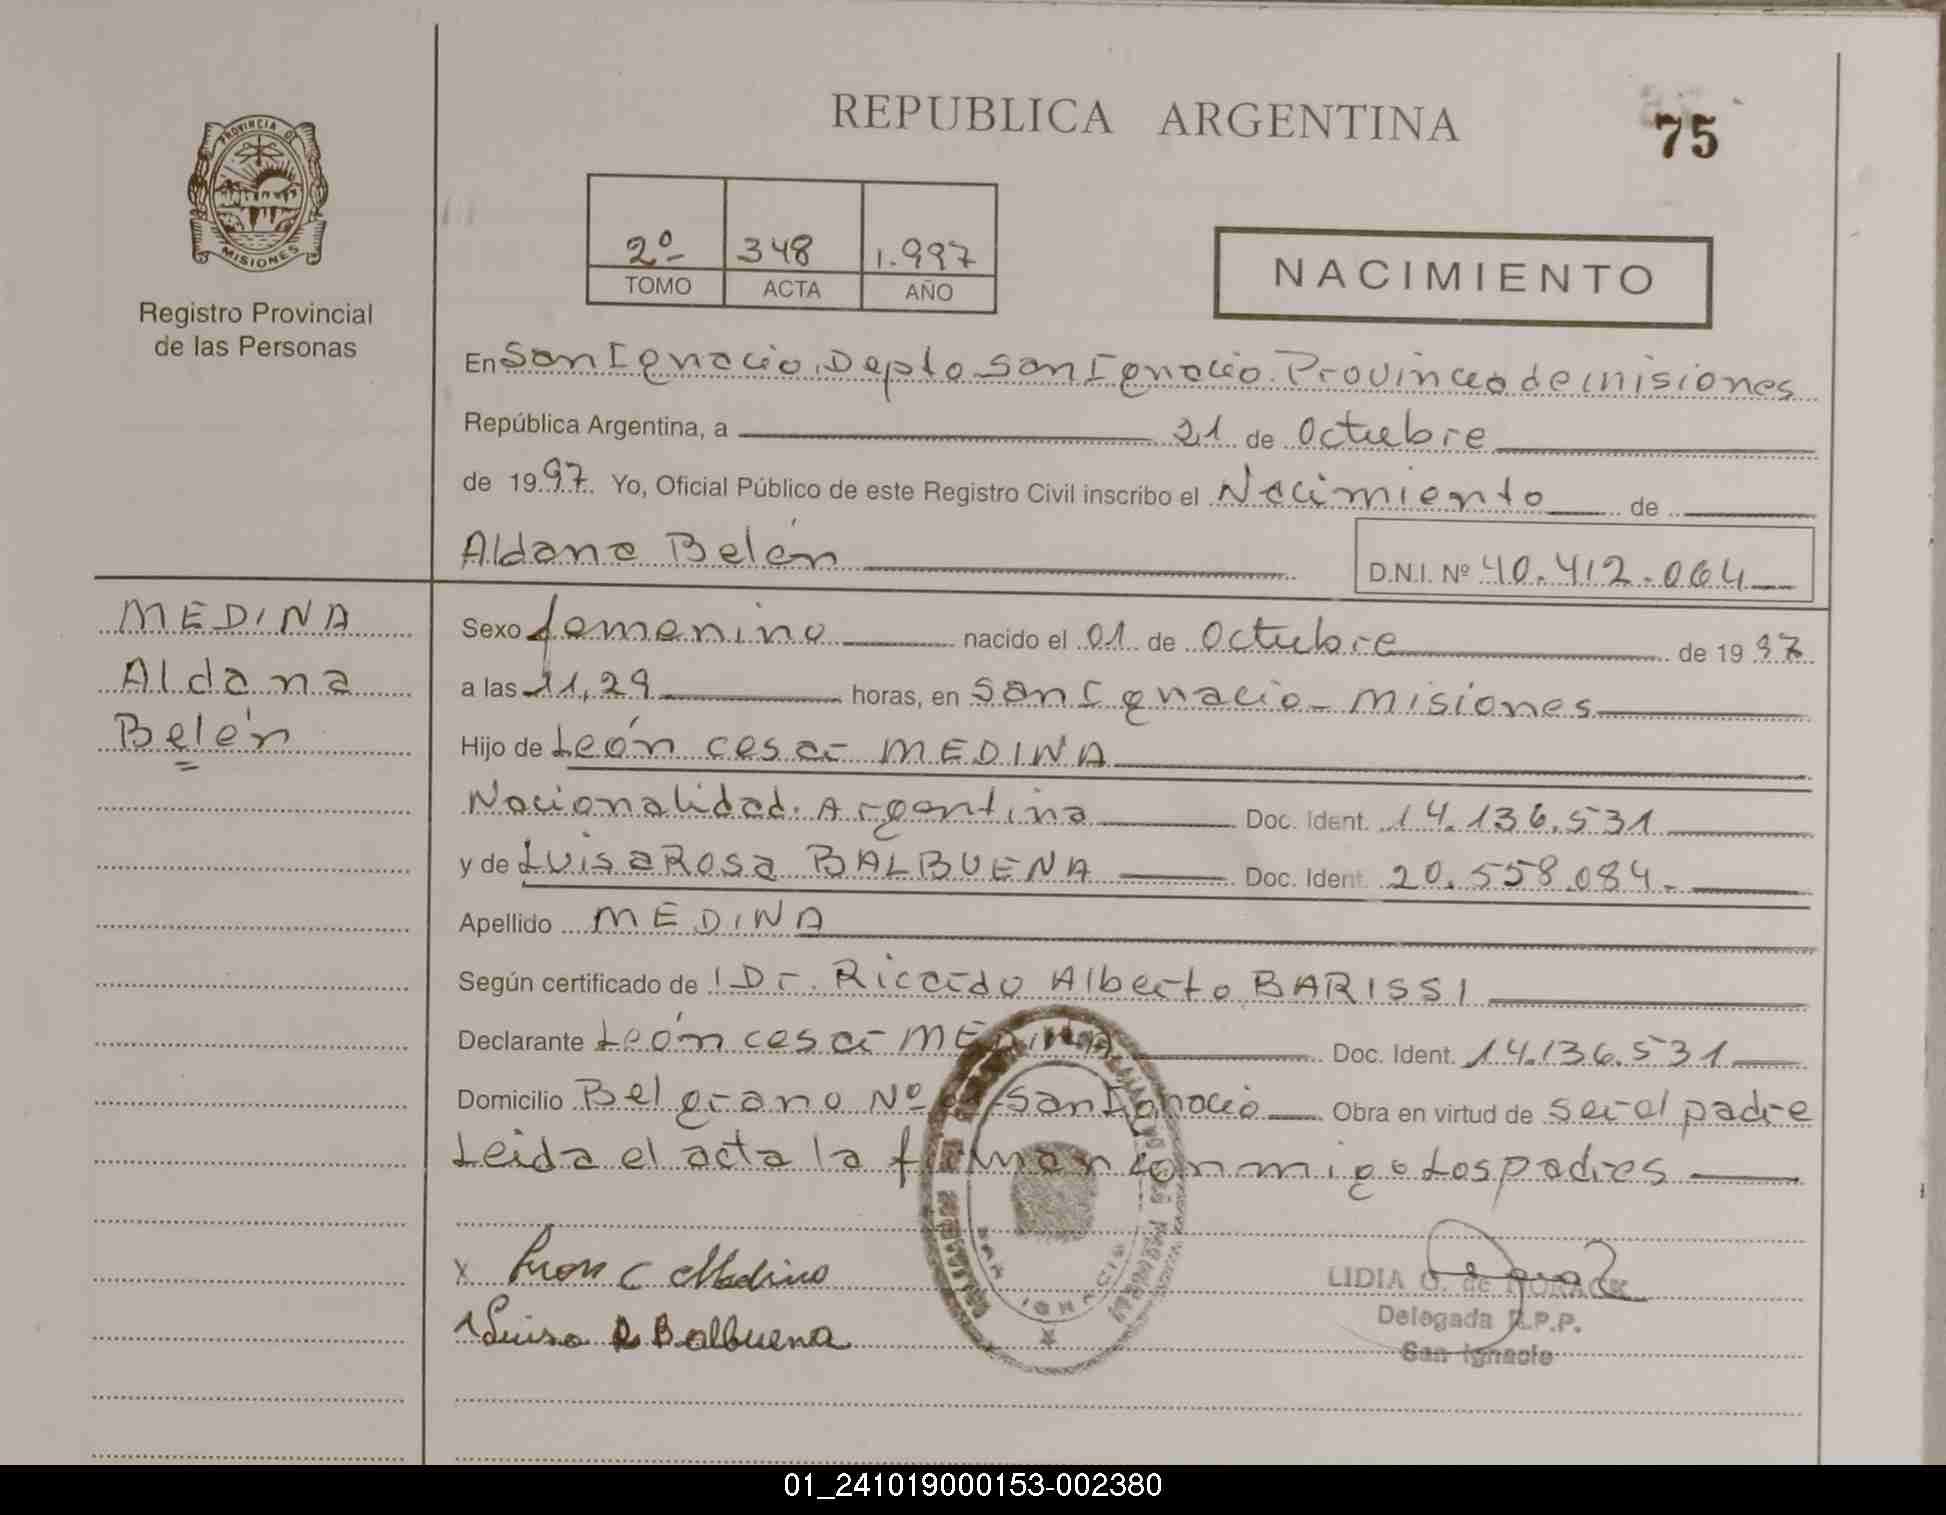 REPUBLICA ARGENTINA
75
PROVINCIA DE
MISIONES
Registro Provincial
de las Personas
2º 348 1.997
TOMO ACTA AÑO
NACIMIENTO
En San Ignacio, Depto San Ignacio. Provincia de misiones
República Argentina, a 21 de Octubre
de 1997. Yo, Oficial Público de este Registro Civil inscribo el Nacimiento de
Aldana Belén D.N.I. Nº 40.412.064
MEDINA
Aldana
Belén
Sexo femenino nacido el 01 de Octubre de 1997
a las 11,29 horas, en San Ignacio - misiones
Hijo de León cesar MEDINA
Nacionalidad. Argentina Doc. Ident. 14.136.531
y de Luisa Rosa BALBUENA Doc. Ident. 20.558.084.-
Apellido MEDINA
Según certificado de Dr. Ricardo Alberto BARISSI
Declarante León cesar MEDINA Doc. Ident. 14.136.531
Domicilio Belgrano Nº San Ignacio Obra en virtud de ser el padre
Leida el acta la firman conmigo Los padres
SAN IGNACIO
x León C Medina
Luisa R Balbuena
LIDIA G. de
Delegada R.P.P.
San Ignacio
01_241019000153-002380